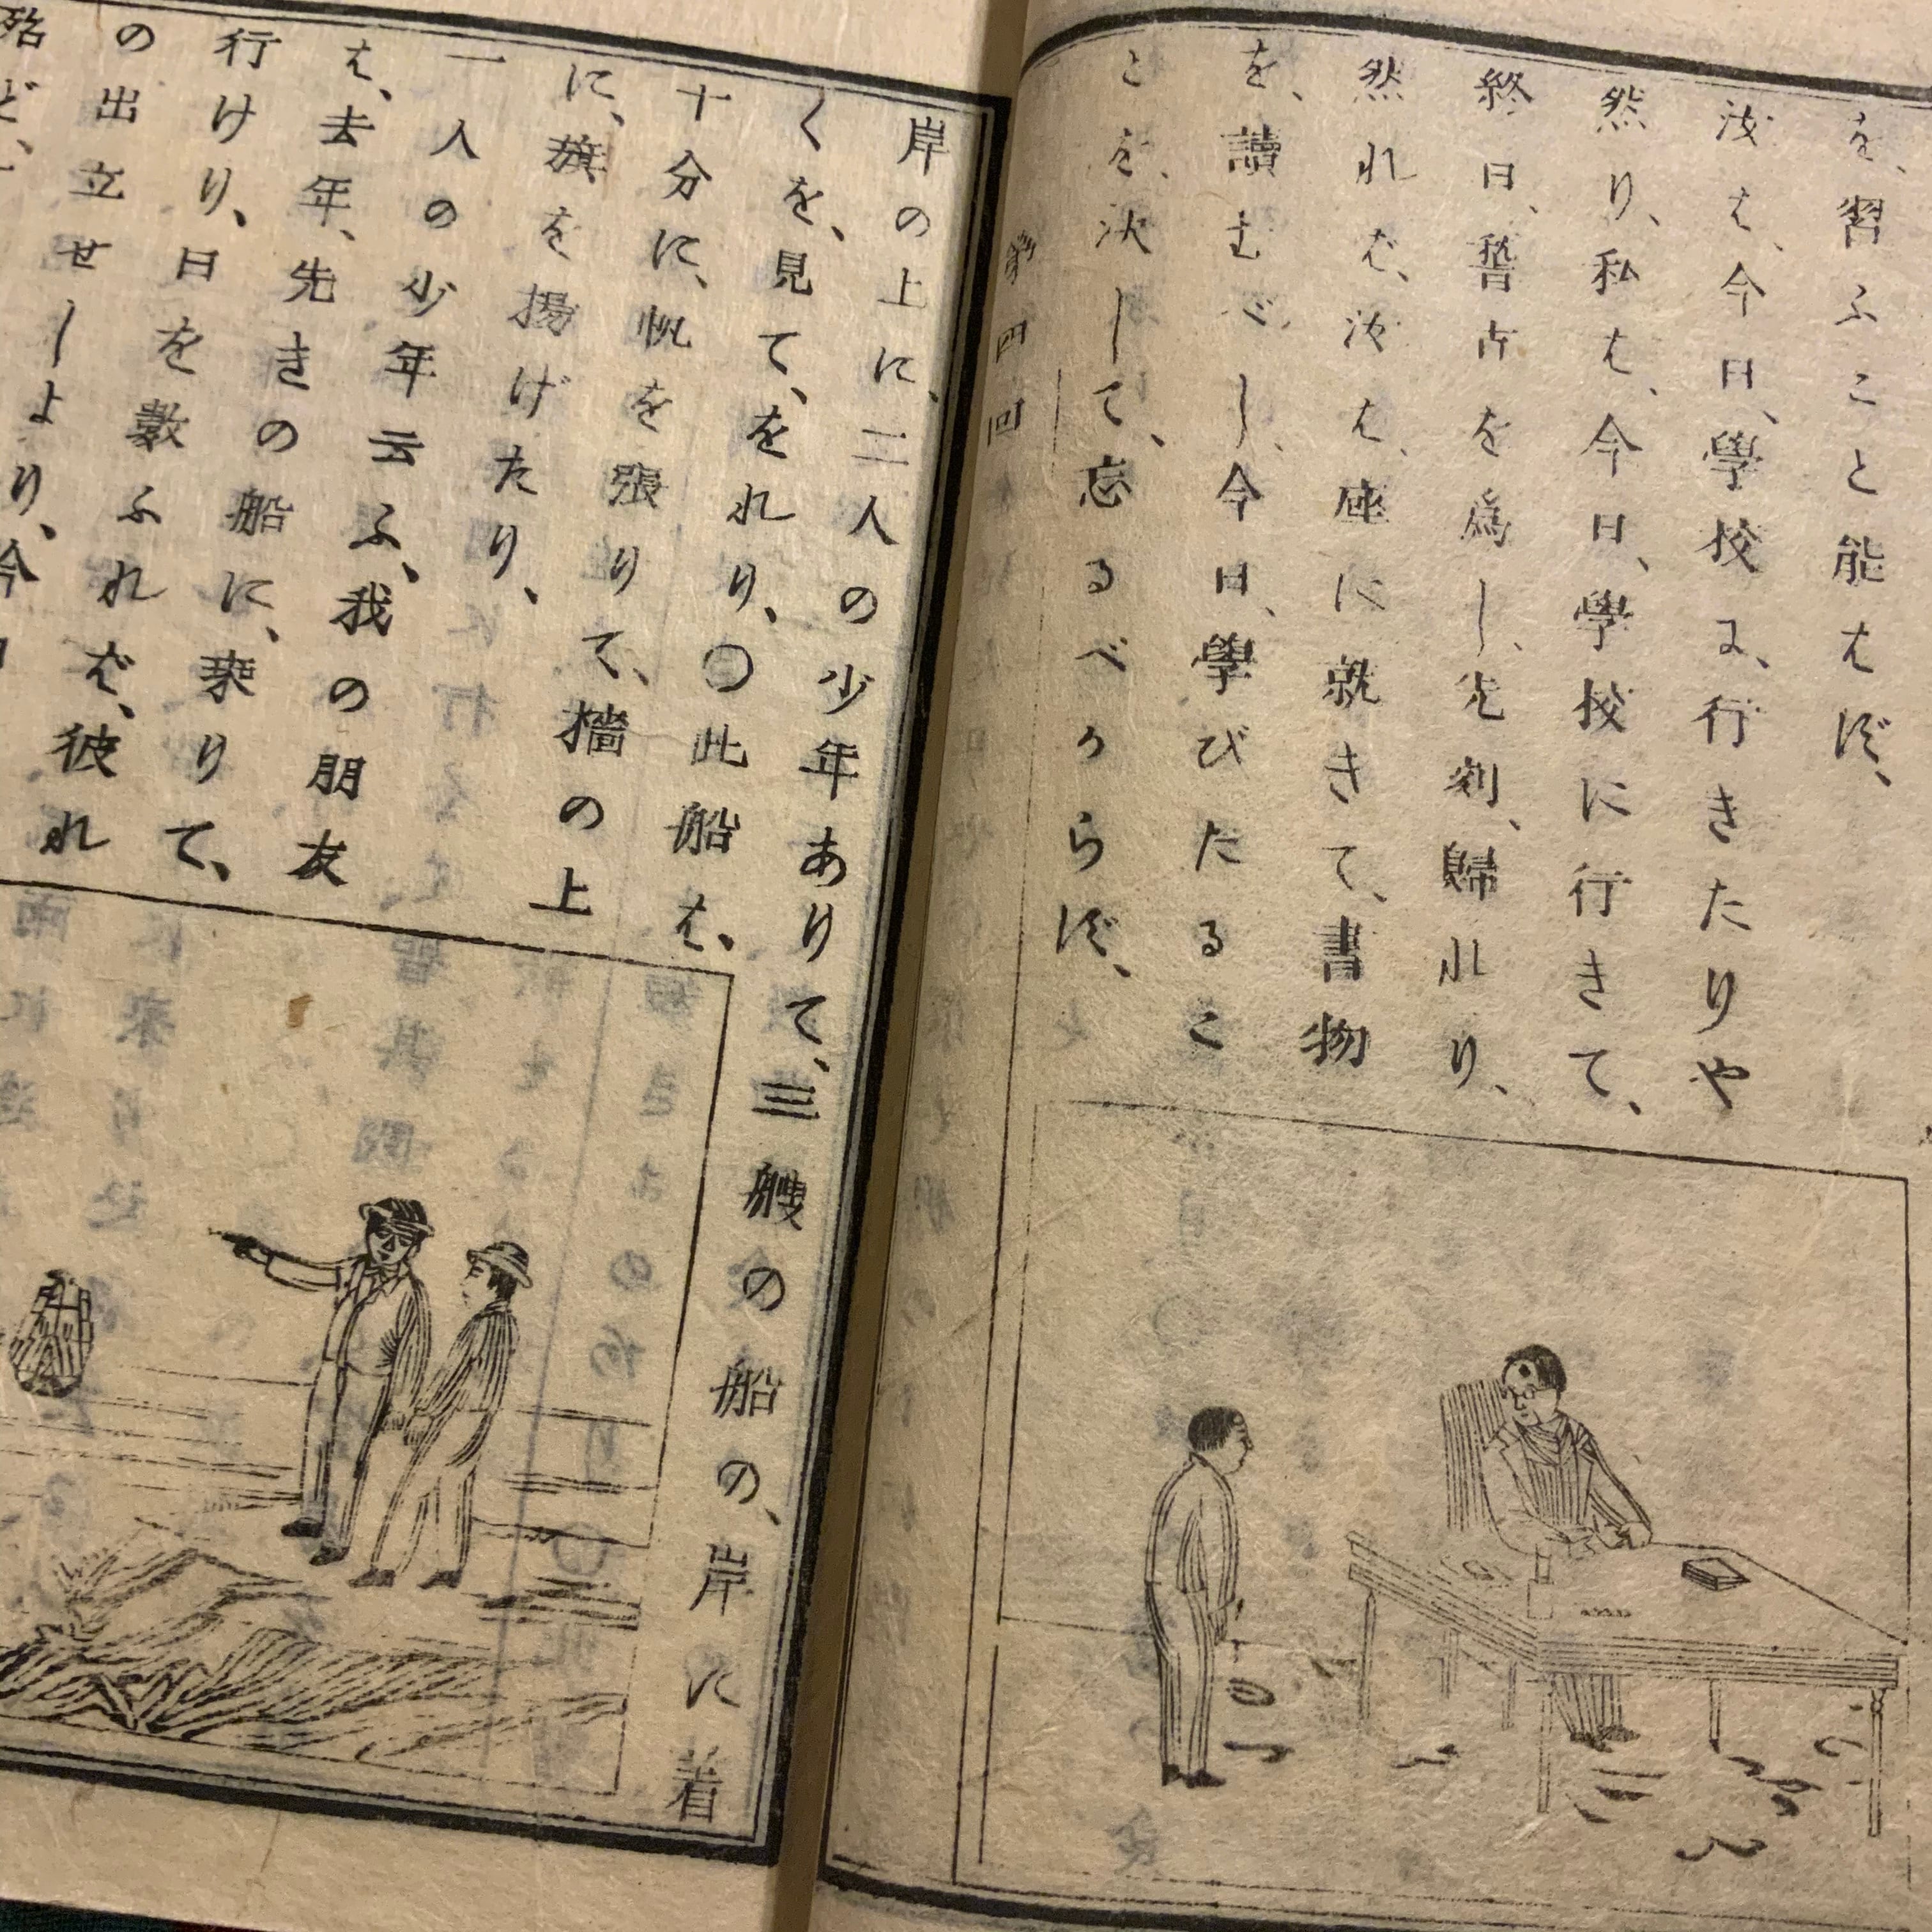 を、習ふこと能はず、
汝は、今日、學校に、行きたりや
然り、私は、今日、學校に行きて、
終日、稽古を為し、先刻、歸れり、
然れば、汝は、座に就きて、書物
を、讀むべし、今日、學びたるこ
とを、決して、忘るべからず、
第四回
岸の上に、二人の少年ありて、三艘の船の、岸に着
くを、見て、をれり、〇此船は、
十分に、帆を張りて、檣の上
に、旗を揚げたり、
一人の少年云ふ、我の朋友
は、去年、先きの船に、乗りて、
行けり、日を數ふれば、彼れ
の出立せしより、今
殆ど、